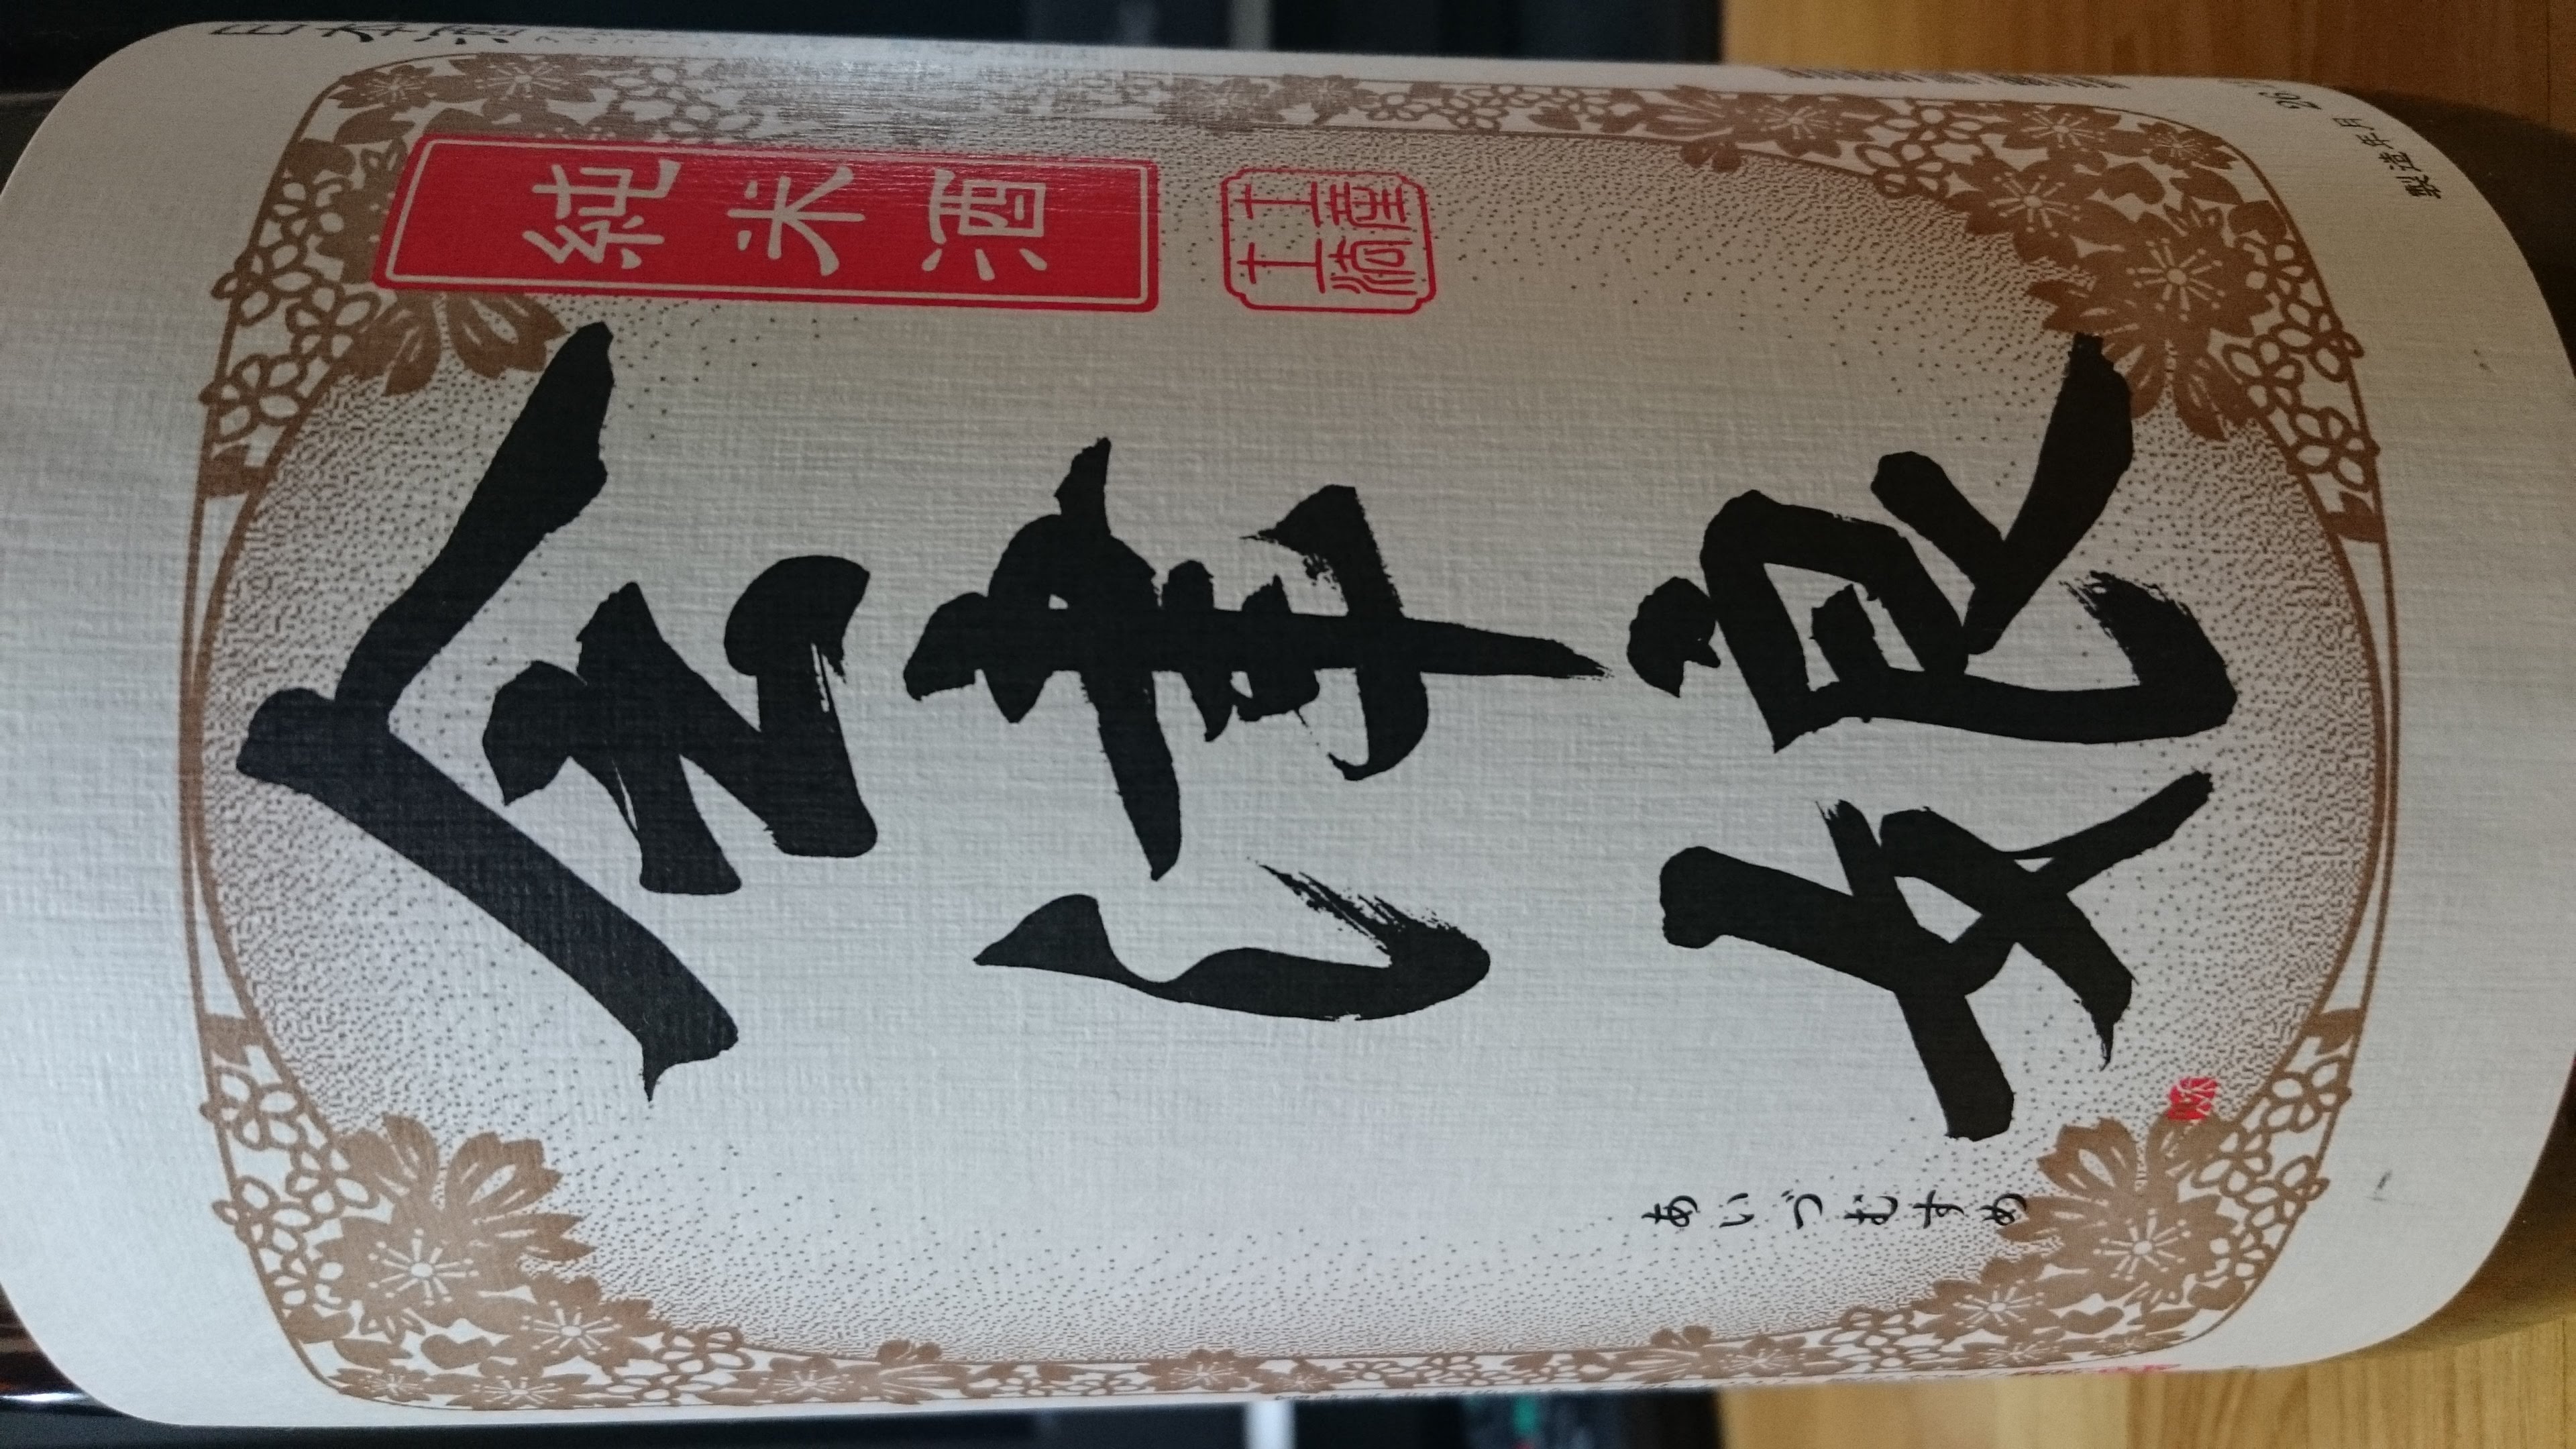 純米酒
会津娘
あいづむすめ
製造年月 26